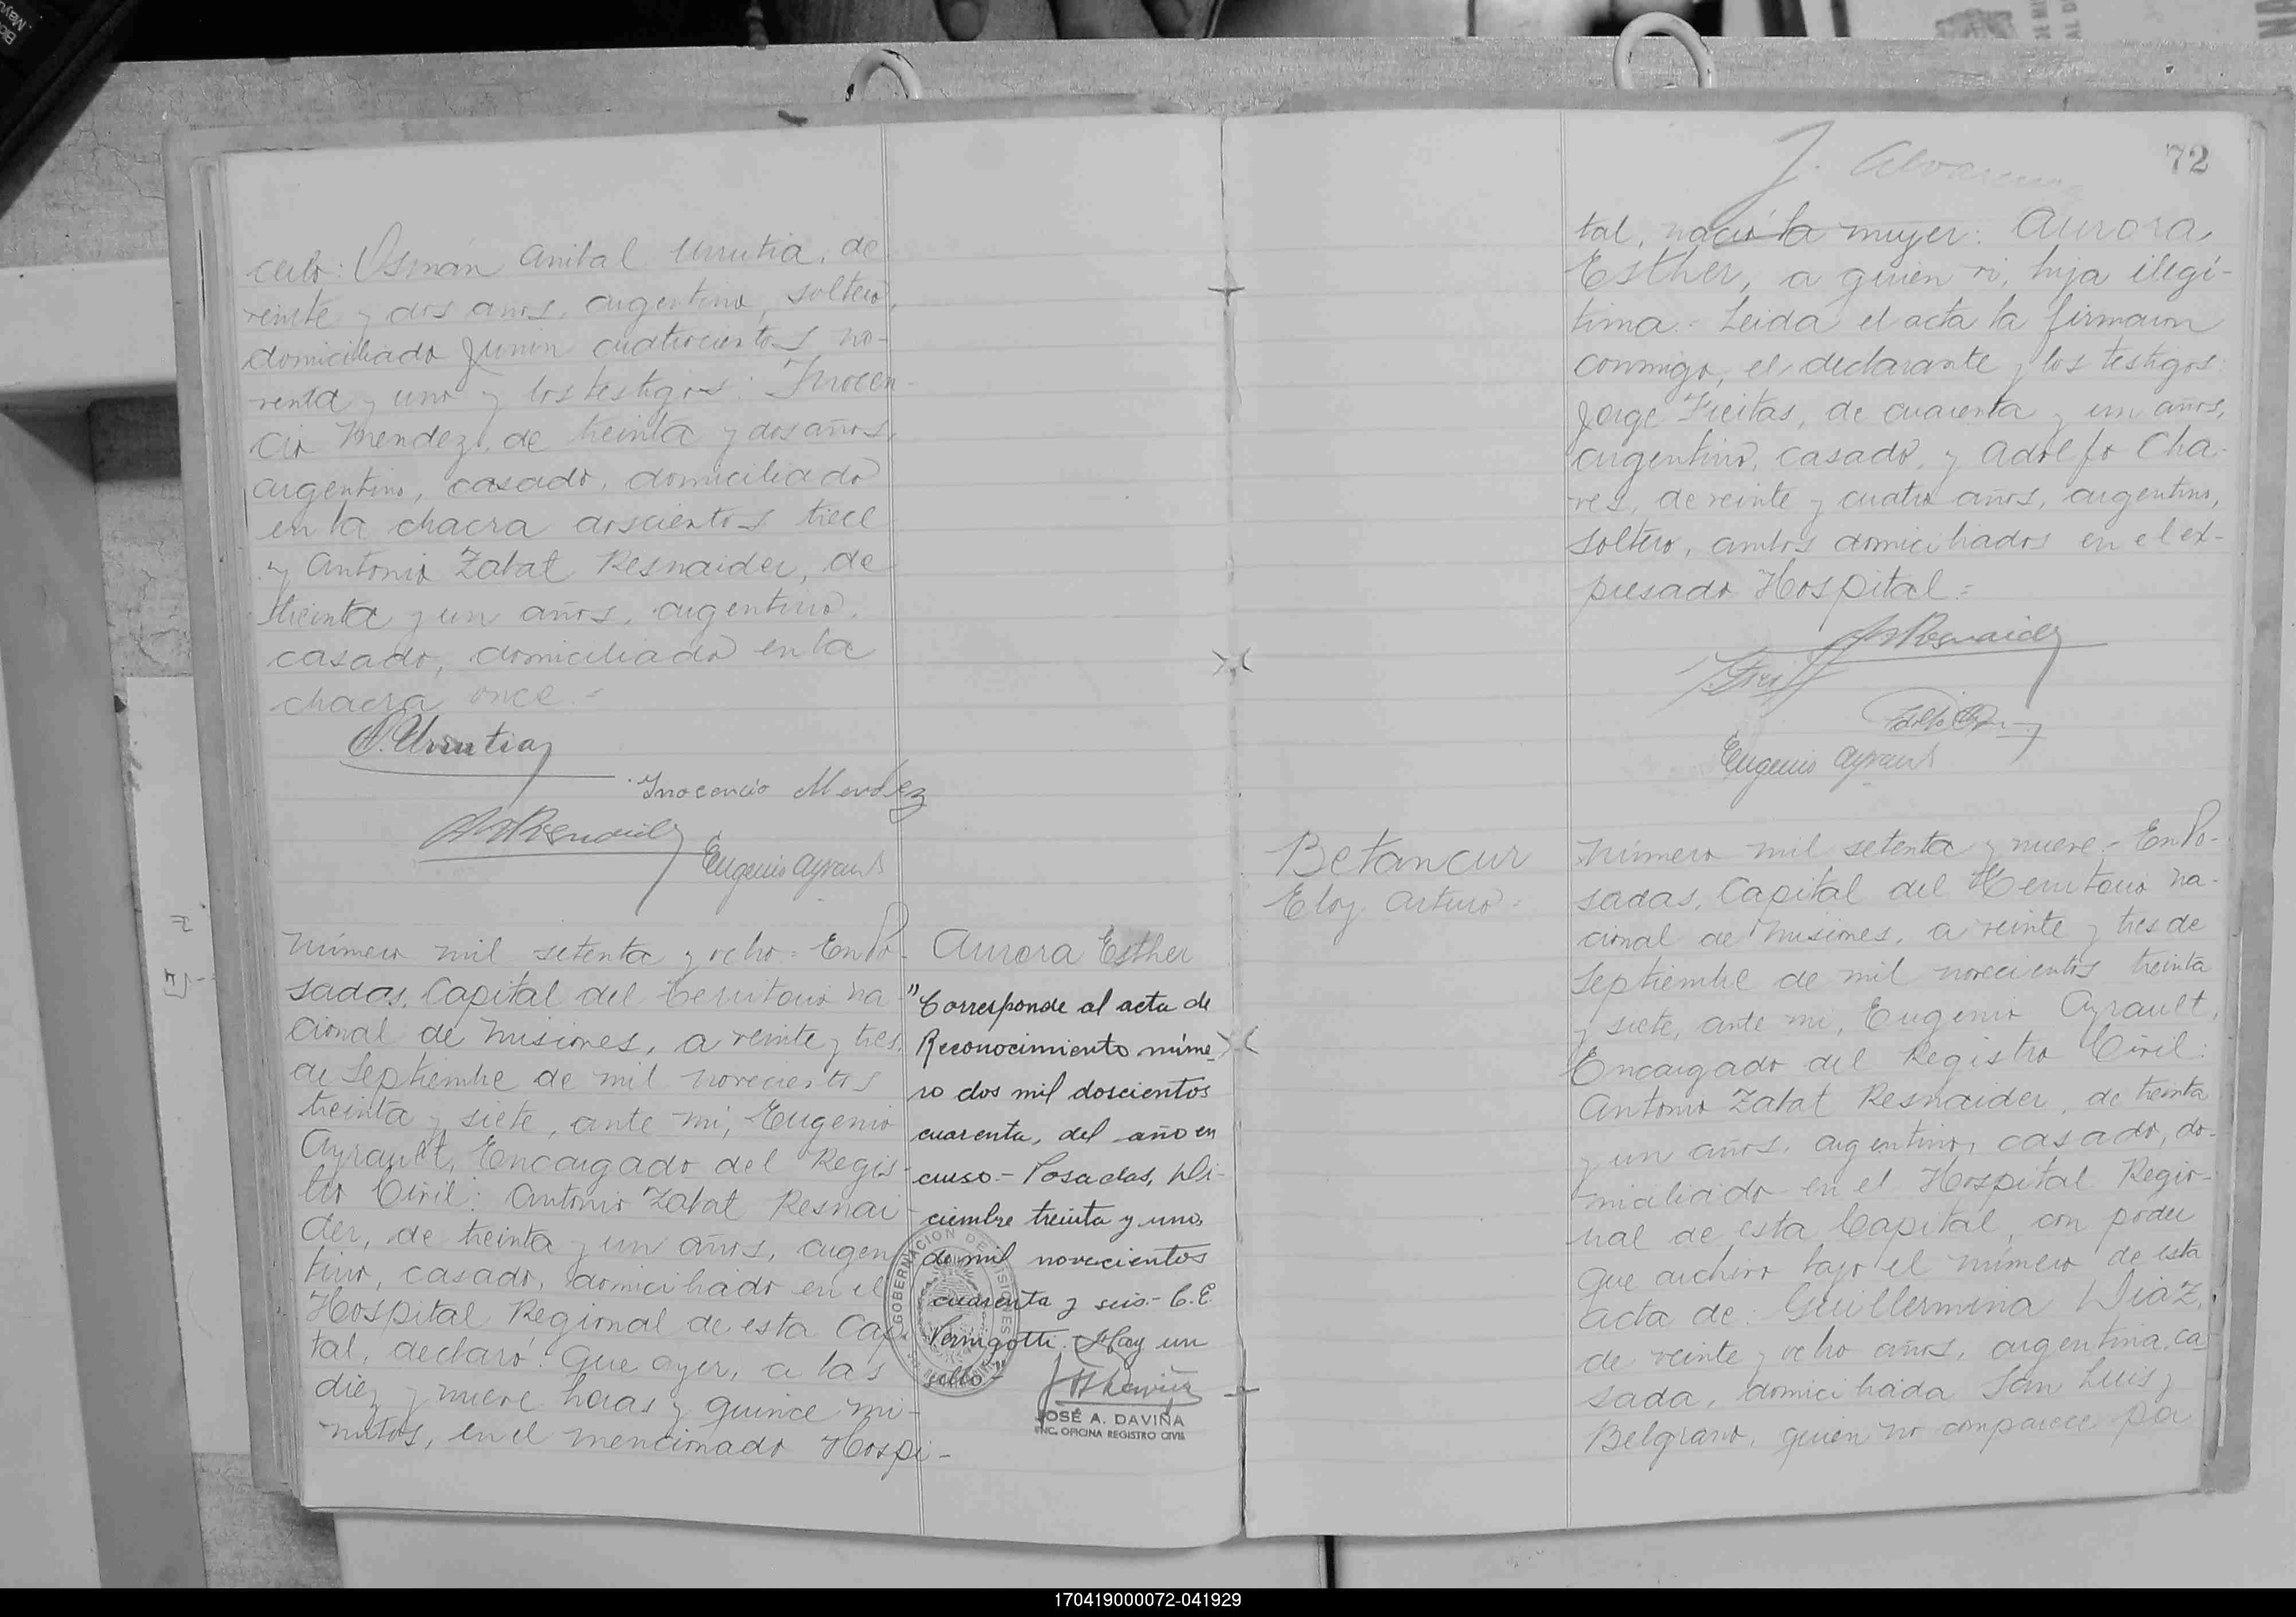 celo: Osmán Anibal Urrutia, de
veinte y dos años, argentino, soltero,
domiciliado Junin cuatrocientos no-
venta y uno y los testigos: Inocen-
cio Mendez, de treinta y dos años,
argentino, casado, domiciliado
en la chacra doscientos trece
y Antonio Zabat Resnaider, de
treinta y un años, argentino,
casado, domiciliado en la
chacra once.-
O. Urrutia
Inocencio Mendez
Eugenio Ayrault
Número mil setenta y ocho = En Po-
sadas, Capital del Territorio na-
cional de Misiones, a veinte y tres
de Septiembre de mil novecientos
treinta y siete, ante mi, Eugenio
Ayrault, Encargado del Regis-
tro Civil: Antonio Zabat Resnai-
der, de treinta y un años, argen
tino, casado, domiciliado en el
Hospital Regional de esta Capi
tal, declaró: Que ayer, a las
diez y nueve horas y quince mi-
nutos, en el mencionado Hospi-
Aurora Esther
"Corresponde al acta de
Reconocimiento núme-
ro dos mil doscientos
cuarenta, del año en
curso.- Posadas, Di-
ciembre treinta y uno,
de mil novecientos
cuarenta y seis.- C.E.
Vernigotti. Hay un
sello"
GOBERNACION DE MISIONES
JOSÉ A. DAVIÑA
ENC. OFICINA REGISTRO CIVIL
72
J. Alvarenga
tal, nació la mujer: Aurora,
Esther, a quien vi, hija ilegí-
tima.- Leida el acta la firmaron
conmigo, el declarante y los testigos:
Jorge Freitas, de cuarenta y un años,
argentino, casado, y Adolfo Cha-
ves, de veinte y cuatro años, argentino,
soltero, ambos domiciliados en el ex-
presado Hospital =
Eugenio Ayrault
Betancur
Eloy Arturo =
Número mil setenta y nueve.- En Po-
sadas, Capital del Territorio na-
cional de Misiones, a veinte y tres de
Septiembre de mil novecientos treinta
y siete, ante mi, Eugenio Ayrault,
Encargado del Registro Civil:
Antonio Zabat Resnaider, de treinta
y un años, argentino, casado, do-
miciliado en el Hospital Regio-
nal de esta Capital, con poder
que archivo bajo el número de esta
acta de: Guillermina Diaz,
de veinte y ocho años, argentina, ca
sada, domiciliada San Luis y
Belgrano, quien no comparece por
170419000072-041929